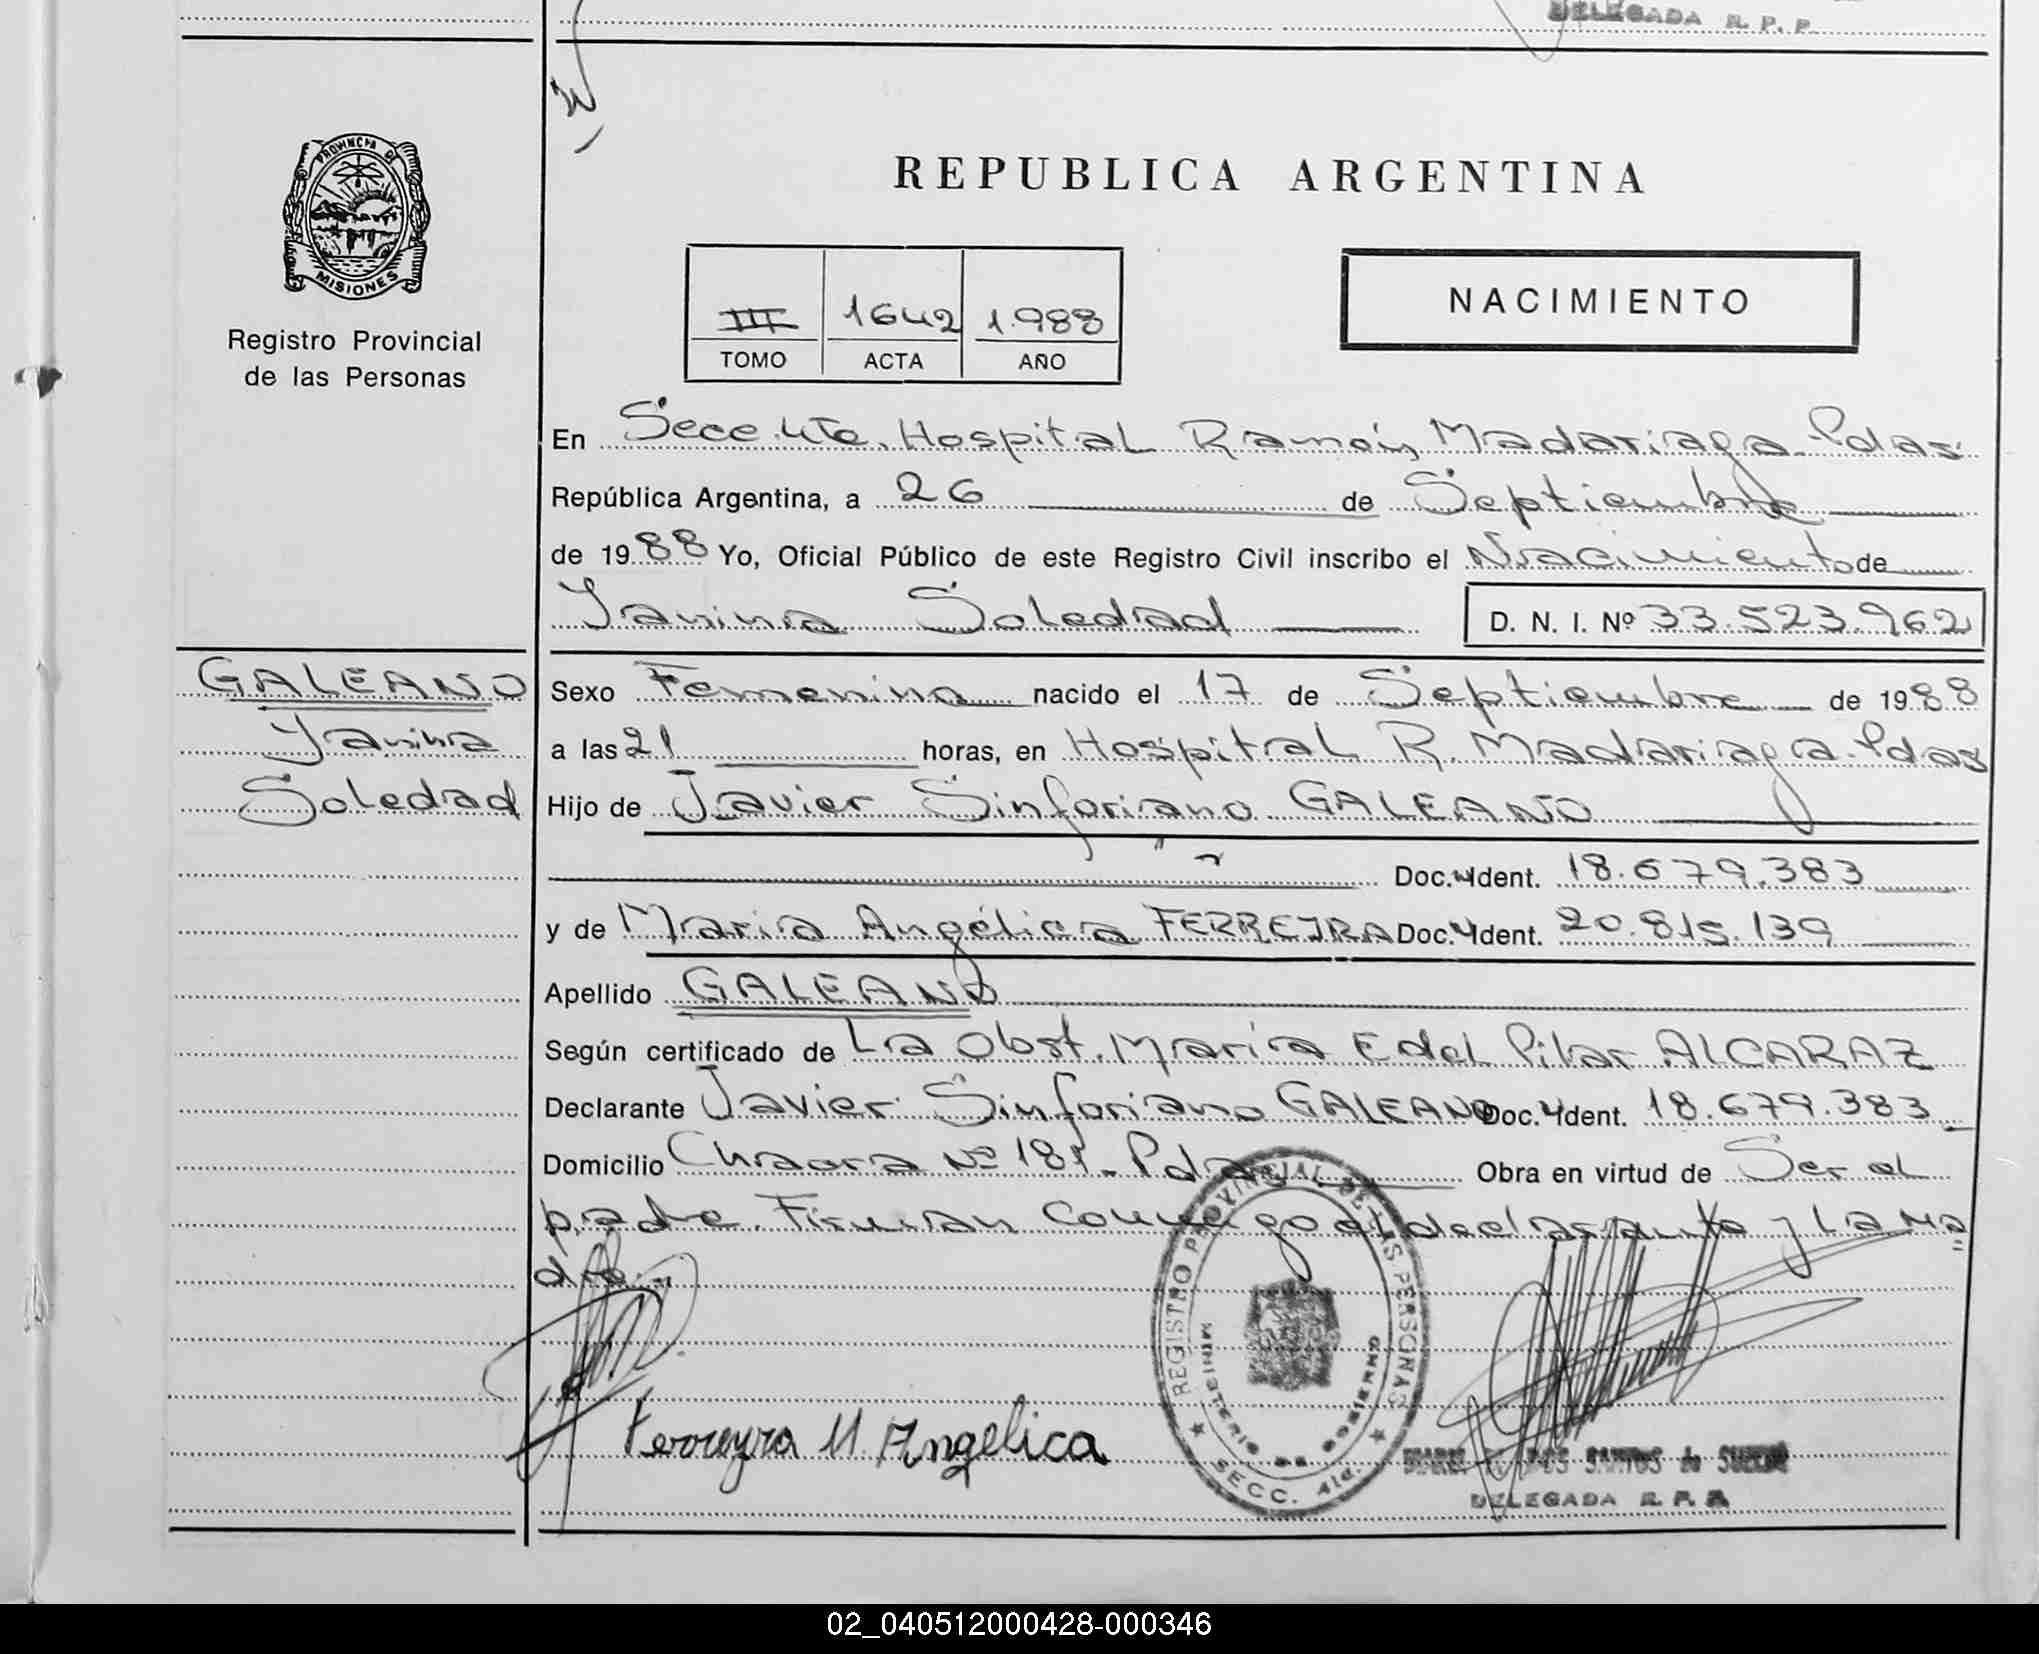 DELEGADA R. P. P.
PROVINCIA DE
MISIONES
Registro Provincial
de las Personas
REPUBLICA ARGENTINA
III 1642 1.988
TOMO ACTA AÑO
NACIMIENTO
En Secc. Hospital Ramón Madariaga Pdas
República Argentina, a 26 de Septiembre
de 1988 Yo, Oficial Público de este Registro Civil inscribo el Nacimiento de
Yanina Soledad D. N. I. Nº 33.523.962
GALEANO
Yanina
Soledad
Sexo Femenino nacido el 17 de Septiembre de 1988
a las 21 horas, en Hospital R. Madariaga-Pdas
Hijo de Javier Sinforiano GALEANO
Doc. Ident. 18.679.383
y de María Angélica FERREIRA Doc. Ident. 20.815.139
Apellido GALEANO
Según certificado de La Obst. María Edel Pilar ALCARAZ
Declarante Javier Sinforiano GALEANO Doc. Ident. 18.679.383
Domicilio Chacra Nº 181-Pdas Obra en virtud de Ser el
padre. Firman Conmigo el declarante y La Ma
dre.
Ferreyra M Angelica
REGISTRO PROVINCIAL DE LAS PERSONAS
MINISTERIO DE GOBIERNO
SECC.
DOS SANTOS de
DELEGADA R. P. P.
02_040512000428-000346